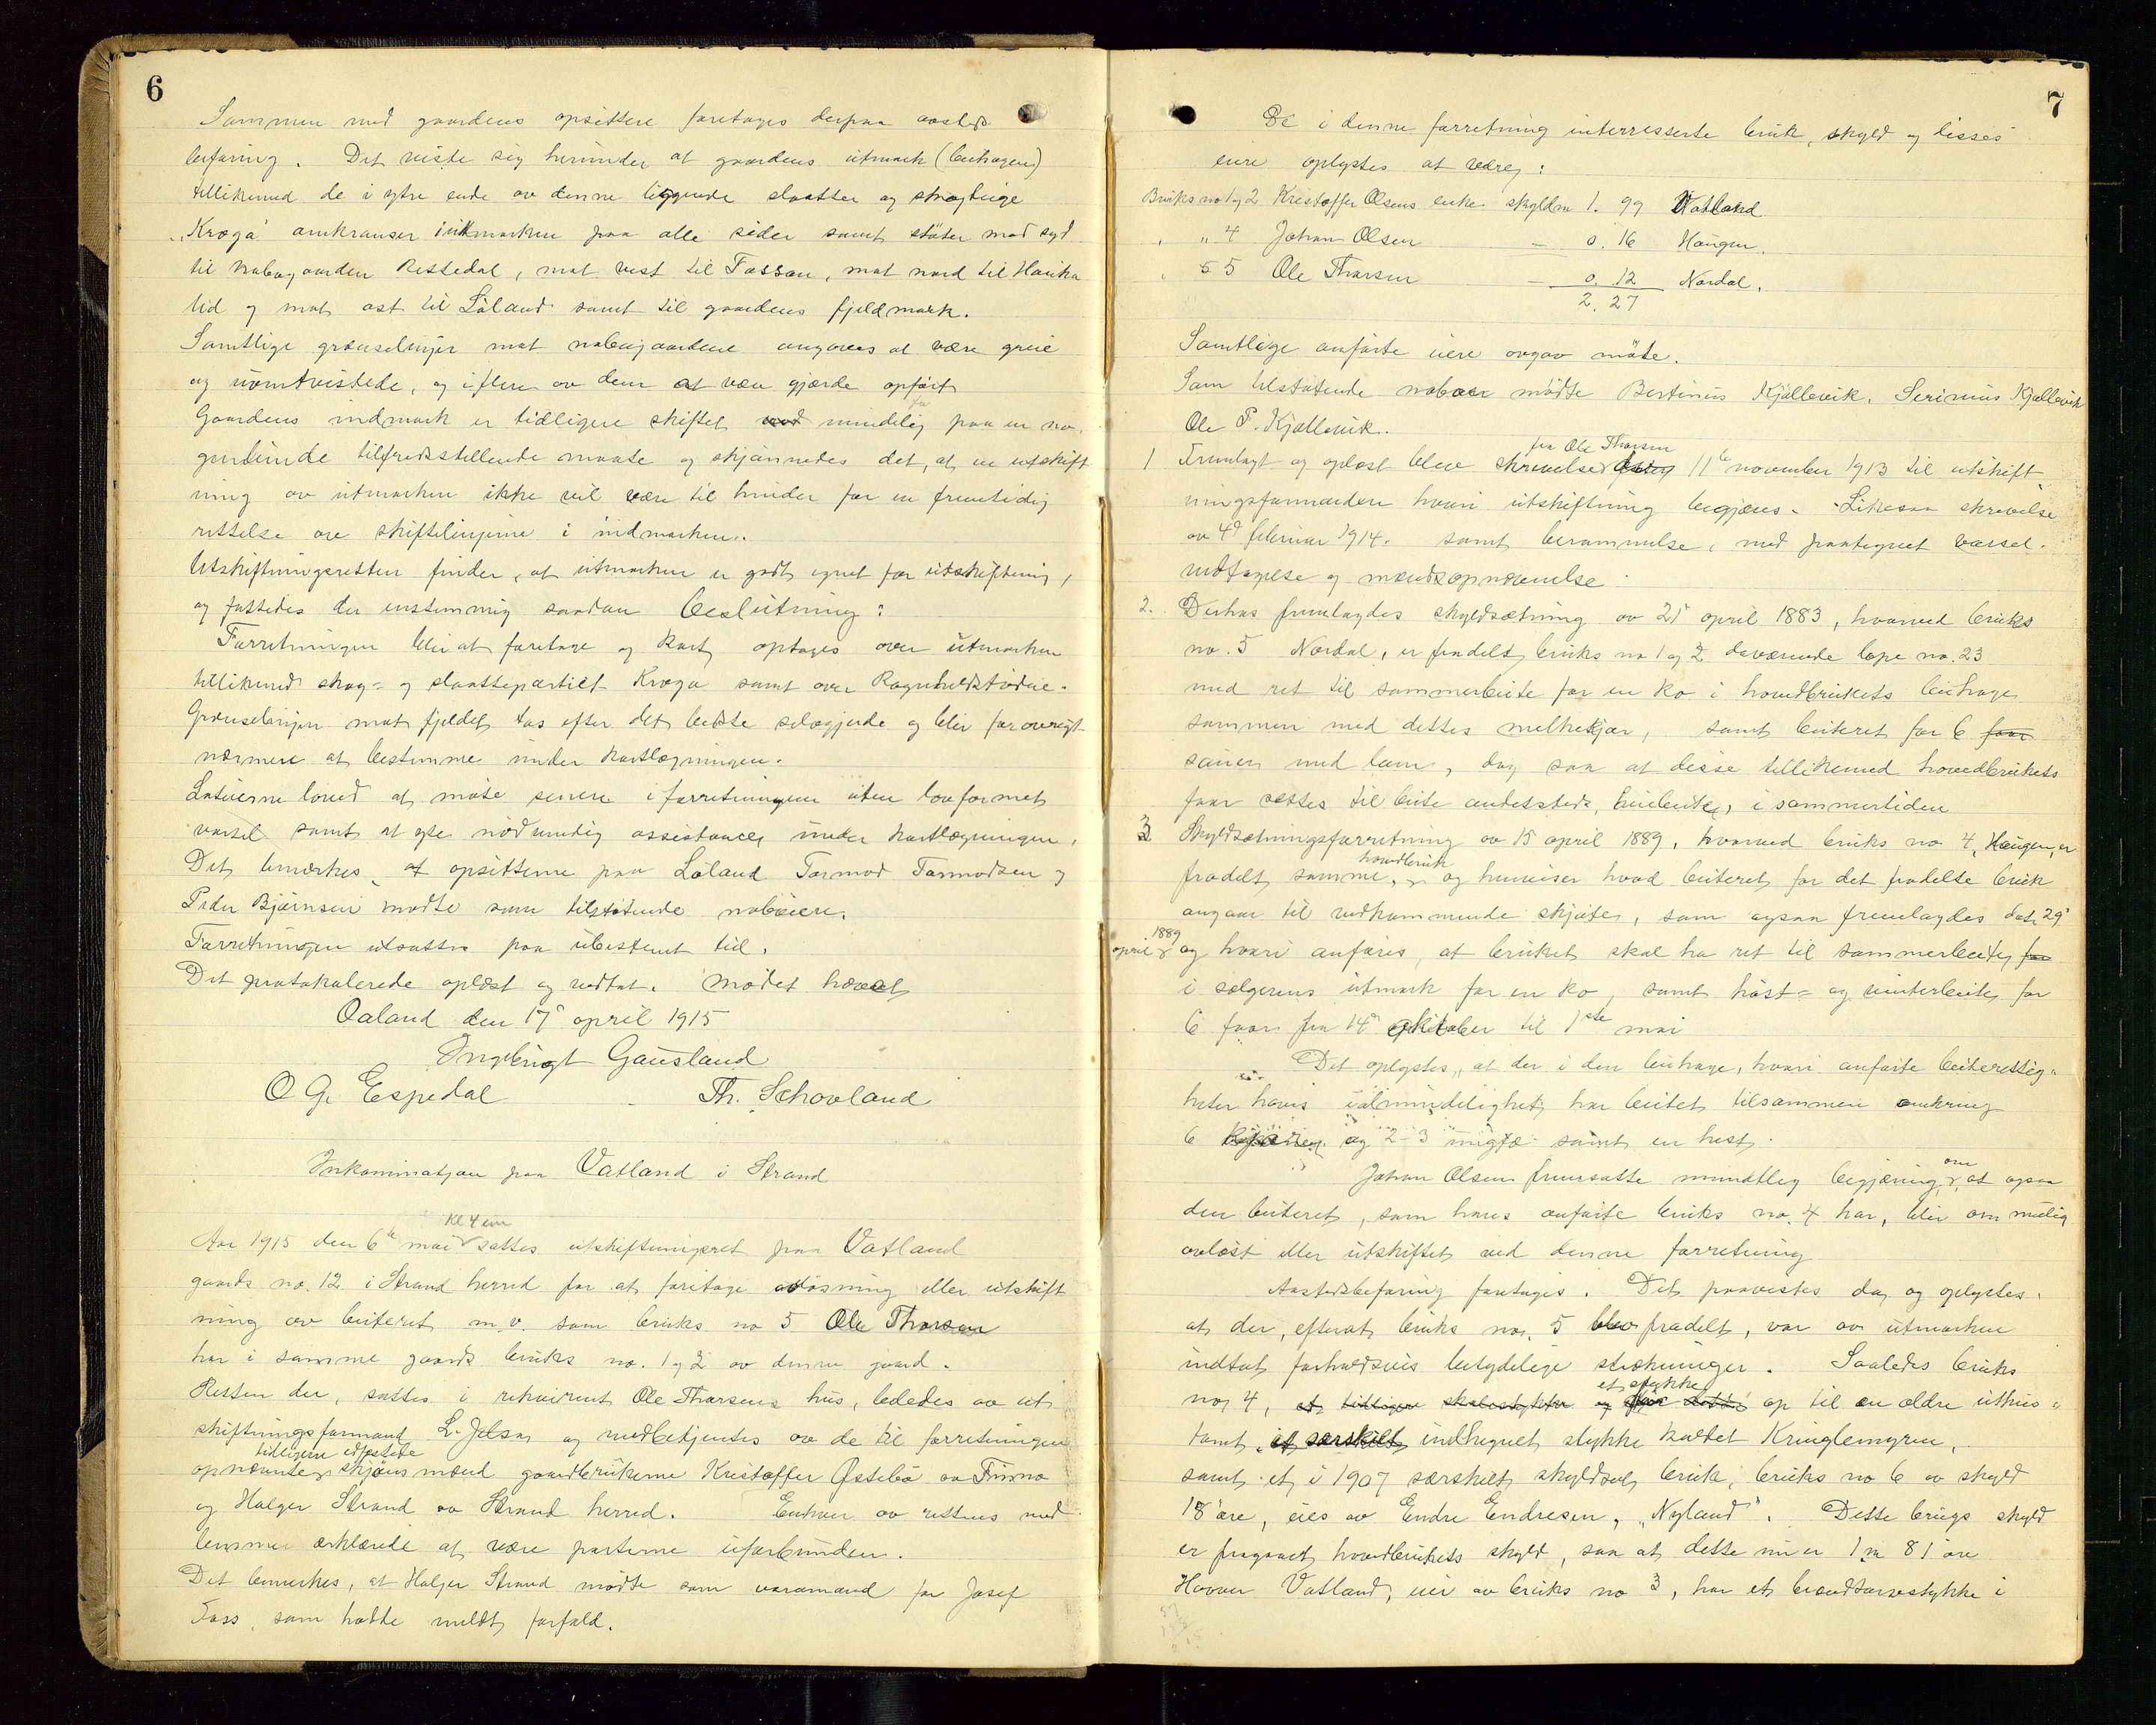 6
Sammen med gaardens opsittere foretages derpaa aasteds
befaring. Det viste sig herunder at gaardens utmark (beitehagen)
tillikemed de i ytre ende av denne liggende slaatter og skogteige
"Kroga" omkranser indmarken paa alle sider samt støter mod syd
til nabogaarden Restedal, mot vest til Fossan, mot nord til Hauka
lid og mot øst til Løland samt til gaardens fjeldmark.
Samtlige grænselinjer mot nabogaardene angives at være greie
og uomtvistede, og i flere av dem at være gjærde opført
Gaardens indmark er tidligere skiftet ved mindelig paa en no.
genlunde tilfredsstillende maate og skjønnedes det, at en utskift
ning av utmarken ikke vil være til hinder for en fremtidig
rettelse av skiftelinjerne i indmarken.
Utskiftningsretten finder, at utmarken er godt egnet for utskiftning,
og fattedes der enstemmig saadan beslutning:
Forretningen blir at foretage og kart optages over utmarken
tillikemed skog- og slaattepartiet Kroga samt over Ragnhildstødne.
Grænselinjen mot fjeldet tas efter det bedste selvgjerde og blir forøvrigt
nærmere at bestemme under kartlægningen.
Loteierne loved at møte senere i forretningen uten lovformet
varsel samt at yte nødvendig assistance under kartlægningen.
Det bemærkes, at opsitterne paa Løland Tormod Tormodsen og
Peder Bjørnsen mødte som tilstøtende naboeiere.
Forretningen utsattes paa ubestemt tid.
Det protokolerede oplæst og vedtat. Mødet hævet
Oaland den 17de april 1915
Ingebrigt Gausland
O G. Espedal Th. Schovland
Inkaminatjon paa Vatland i Strand
Kl 4 em
Aar 1915 den 6te mai sattes utskiftningsret paa Vatland
gaards no. 12 i Strand herred for at foretage avløsning eller utskift
ning av beiteret m.v. som bruks no 5 Ole Thorsen
har i samme gaards bruks no. 1 og 2 av denne gaard.
Retten der, sattes i rekvirent Ole Thorsens hus, lededes av ut
skiftningsformand L. Jelsa og medbetjentes av de til forretningen
tidligere edfæstede
opnævnte skjønsmænd gaardbrukerne Kristoffer Østebø av Finnø
og Holger Strand av Strand herred. Enhver av rettens med
lemmer erklærede at være parterne uforbunden.
Det bemerkes, at Holger Strand mødte som varamand for Josef
Foss, som hadde meldt forfald.
7
De i denne forretning interresserte bruk, skyld og disses
eiere oplystes at være:
Bruks no 1 og 2 Kristoffer Olsens enke skyldm 1. 99 Vatland
" " 4 Johan Olsen — 0. 16 Haugen.
" 5 5 Ole Thorsen — 0. 12 Nordal.
2. 27
Samtlige anførte eiere avgav møte.
Som tilstøtende naboer mødte Bertinius Kjøllevik, Serinius Kjøllevik
Ole P. Kjøllevik.
fra Ole Thorsen
1 Fremlagt og oplæst blev skrivelse 11te november 1913 til utskift
ningsformanden hvori utskiftning begjæres. Likesaa skrivelse
av 4de februar 1914. samt berammelse, med paategnet varsel.
vedtagelse og mændsopnævnelse.
2. Derhos fremlagdes skyldsætning av 21de april 1883, hvorved bruks
no. 5 Nordal, er fradelt bruks no 1 og 2 daværende løpe no. 23
med ret til sommerbeite for en ko i hovedbrukets beitehage
sammen med dettes melkekjør, samt beiteret for 6 faar
sauer med lam, dog saa at disse tillikemed hovedbrukets
faar sættes til beite andetsteds, i sommertiden
3 Skyldsætningsforretning av 15 april 1889, hvorved bruks no 4, Haugen, er
hovedbruk
fradelt samme, og henviser hvad beiteret for det fradelte bruk
angaar til vedkommende skjøte, som ogsaa fremlagdes dat. 29de
1889
april og hvori anføres, at bruket skal ha ret til sommerbeite for
i sælgerens utmark for en ko, samt høst- og vinterbeite for
6 faar fra 14de oktober til 1ste mai
Det oplystes, at der i den beitehage, hvori anførte beiterettig-
heter haves i almindelighet har beitet tilsammen omkring
6 og 2-3 ungfæ samt en hest.
Johan Olsen fremsatte mundtlig begjæring om at ogsaa
den beiteret, som hans anførte bruks no. 4 har, blir om mulig
avløst eller utskiftet ved denne forretning
Aastedsbefaring foretages. Det paavistes da, og oplystes,
at der, efterat bruks no. 5 blev fradelt, var av utmarken
indtat forholdsvis betydelige strækninger. Saaledes bruks
et stykke
no, 4, op til en ældre uthus
tomt, et særskilt indhegnet stykke kaldet Kringlemyren,
samt et i 1907 særskilt skyldsat bruk, bruks no 6 av skyld
18 øre, eies av Endre Endresen, "Nyland". Dette brugs skyld
er fragaaet hovedbrukets skyld, saa at dette nu er 1 m 81 øre
Håvar Vatland, eier av bruks no 3, har et brændtorvestykke i